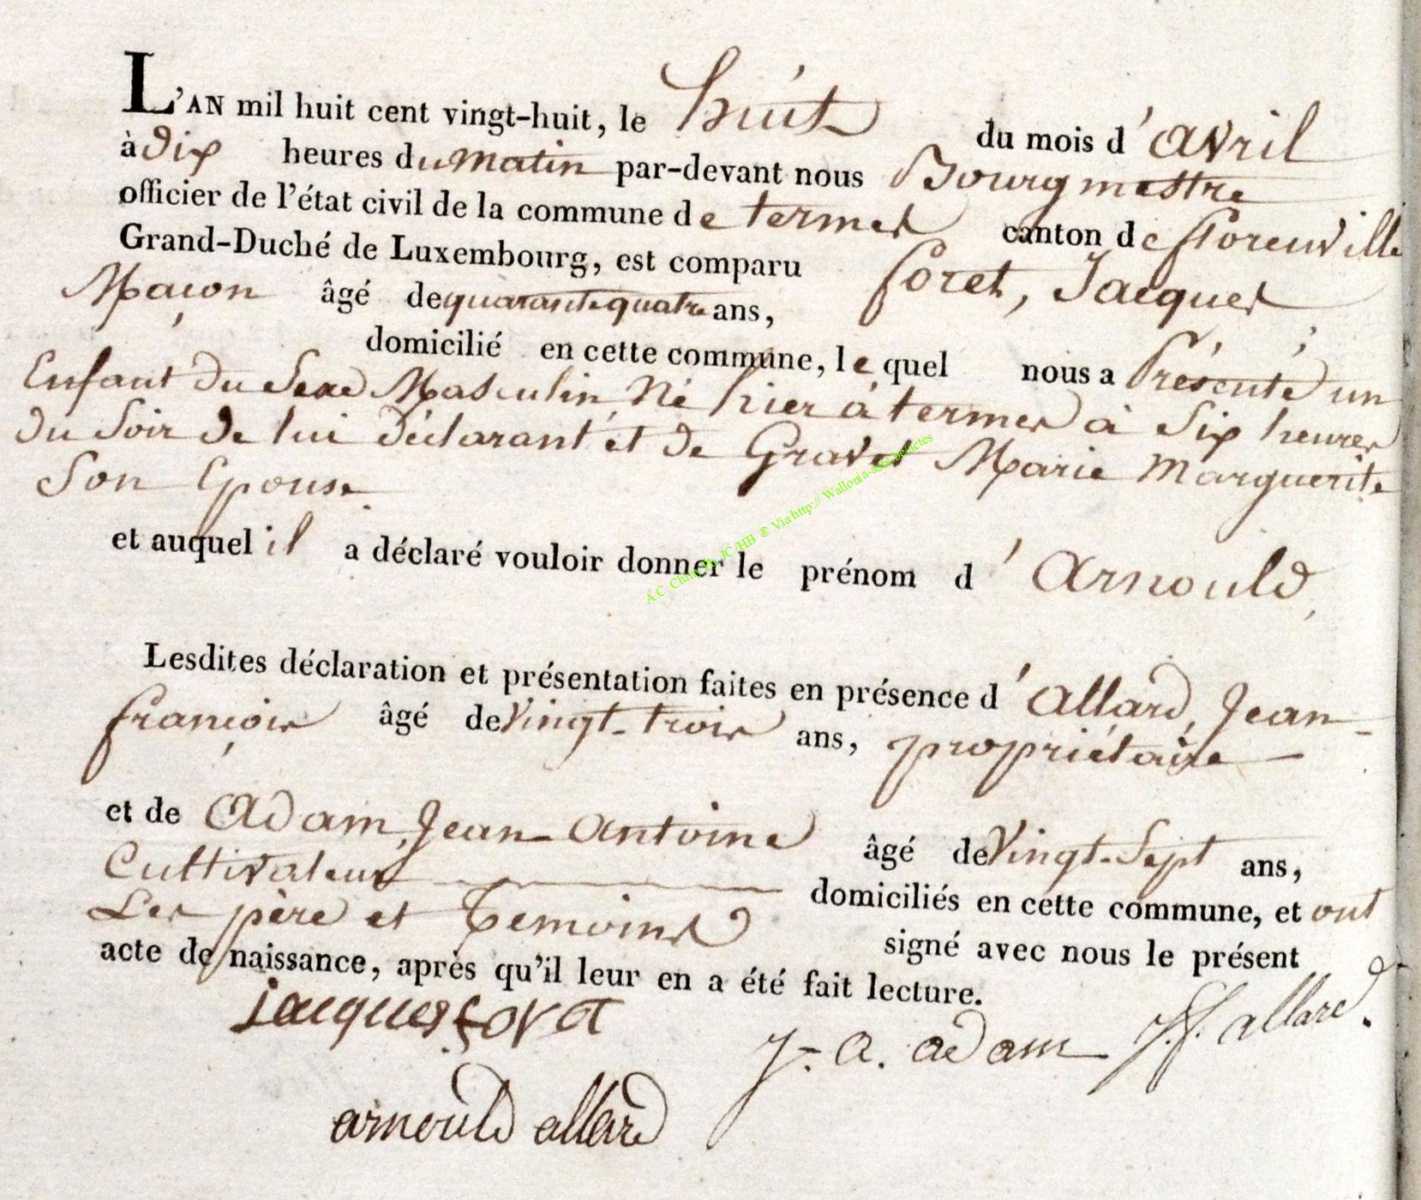 L'AN mil huit cent vingt-huit, le huit du mois d'avril
à dix heures du matin par-devant nous Bourgmestre
officier de l'état civil de la commune de termes canton de florenville
Grand-Duché de Luxembourg, est comparu foret, Jacques
Maçon âgé de quarante quatre ans,
domicilié en cette commune, le quel nous a Présenté un
Enfant du Sexe Masculin, Né hier à termes à Six heures
du Soir de lui déclarant et de Gravet Marie Marguerite
Son Epouse
et auquel il a déclaré vouloir donner le prénom d'Arnould,
Lesdites déclaration et présentation faites en présence d'allard, Jean-
françois âgé de Vingt-trois ans, propriétaire
et de Adam, Jean-Antoine âgé de Vingt-Sept ans,
Cultivateur domiciliés en cette commune, et ont
Les père et Temoins signé avec nous le présent
acte de naissance, après qu'il leur en a été fait lecture.
jacques foret
J. A. adam J.f. allard.
arnould allard